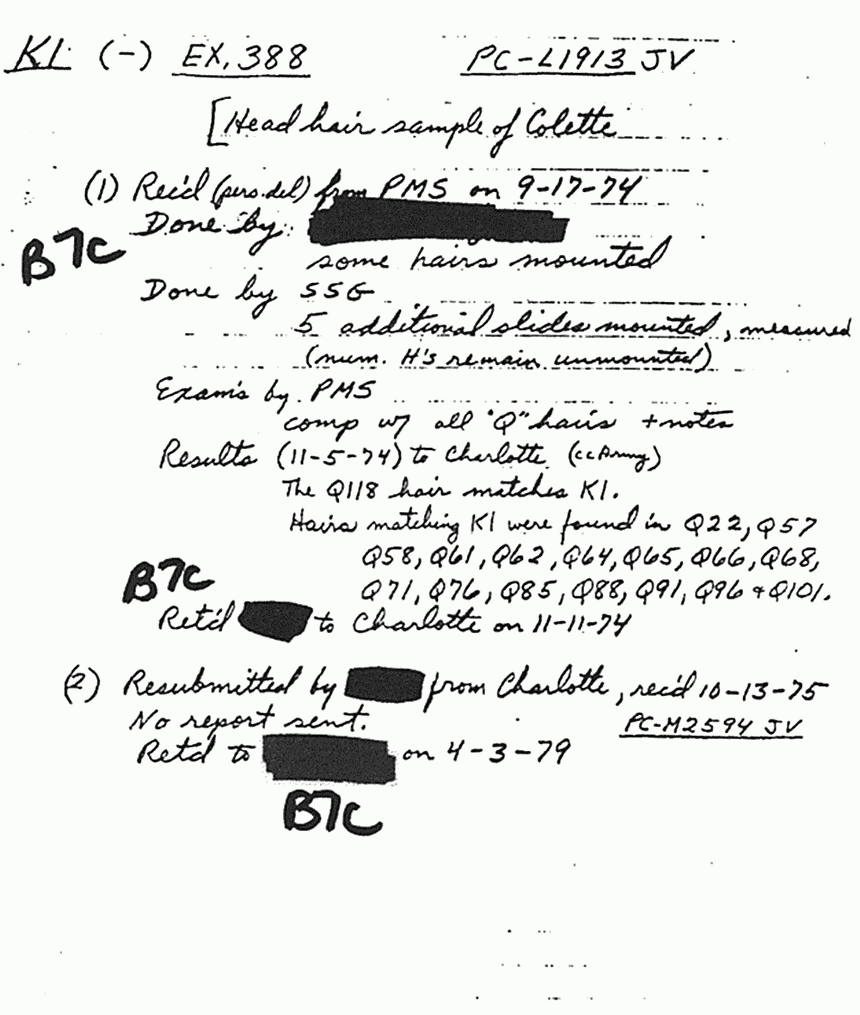 K1 (-) EX. 388 PC-L1913 JV
[Head hair sample of Colette
(1) Rec'd (pers. del) from PMS on 9-17-74
Done by:
B7C
some hairs mounted
Done by SSG
5 additional slides mounted, measured
(num. H's remain unmounted)
Exam's by PMS
comp w/ all "Q" hairs + notes
Results (11-5-74) to Charlotte (cc Army)
The Q118 hair matches K1.
Hairs matching K1 were found in Q22, Q57
Q58, Q61, Q62, Q64, Q65, Q66, Q68,
B7C
Q71, Q76, Q85, Q88, Q91, Q96 + Q101.
Ret'd to Charlotte on 11-11-74
(2) Resubmitted by from Charlotte, rec'd 10-13-75
No report sent. PC-M2594 JV
Retd to on 4-3-79
B7C